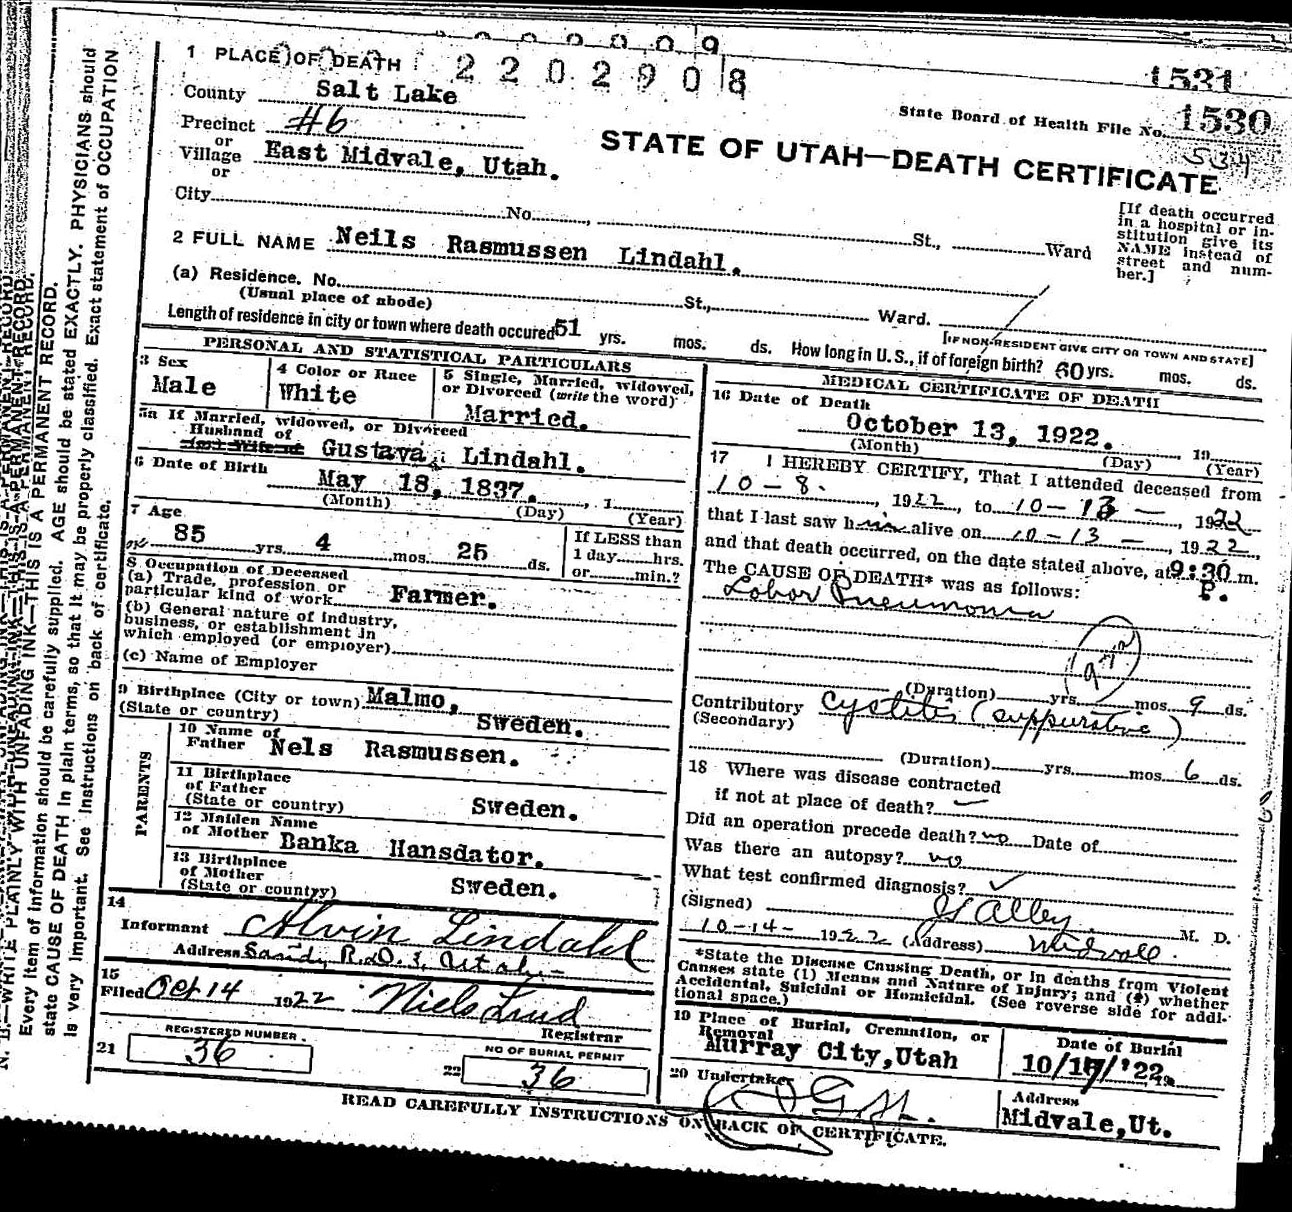 2202908
1531
1 PLACE OF DEATH
County Salt Lake
State Board of Health File No. 1530
534
Precinct #6
or
Village East Midvale, Utah.
or
STATE OF UTAH—DEATH CERTIFICATE
City No. , St., Ward
[If death occurred in a hospital or in-
stitution give its
NAME instead of
street and num-
ber.]
2 FULL NAME Neils Rasmussen Lindahl.
(a) Residence. No. St., Ward.
(Usual place of abode)
[IF NON-RESIDENT GIVE CITY OR TOWN AND STATE]
Length of residence in city or town where death occured 51 yrs. mos. ds. How long in U. S., if of foreign birth? 60 yrs. mos. ds.
PERSONAL AND STATISTICAL PARTICULARS
3 Sex
Male
4 Color or Race
White
5 Single, Married, widowed,
or Divorced (write the word)
Married.
5a If Married, widowed, or Divorced
Husband of
(or) Wife of Gustava Lindahl.
6 Date of Birth
May 18, 1837. , 1
(Month) (Day) (Year)
7 Age
85 yrs. 4 mos. 25 ds.
If LESS than
1 day hrs.
or min.?
8 Occupation of Deceased
(a) Trade, profession or
particular kind of work Farmer.
(b) General nature of industry,
business, or establishment in
which employed (or employer)
(c) Name of Employer
9 Birthplace (City or town) Malmo,
(State or country) Sweden.
PARENTS
10 Name of
Father Nels Rasmussen.
11 Birthplace
of Father
(State or country) Sweden.
12 Maiden Name
of Mother Banka Hansdator.
13 Birthplace
of Mother
(State or country) Sweden.
14
Informant Alvin Lindahl
Address Sandy R.D. 3, Utah.
15
Filed Oct 14 1922 Niels Lind
Registrar
REGISTERED NUMBER.
21 36
NO OF BURIAL PERMIT
22 36
MEDICAL CERTIFICATE OF DEATH
16 Date of Death
October 13, 1922. 19
(Month) (Day) (Year)
17 I HEREBY CERTIFY, That I attended deceased from
10-8. , 1922, to 10-13- , 1922
that I last saw him alive on 10-13- , 1922,
and that death occurred, on the date stated above, at 9:30 m.
P.
The CAUSE OF DEATH* was as follows:
Lobar Pneumonia
(Duration) yrs. mos. 9 ds.
Contributory Cystitis (suppurative)
(Secondary)
(Duration) yrs. mos. 6 ds.
18 Where was disease contracted
if not at place of death?
Did an operation precede death? no Date of
Was there an autopsy? no
What test confirmed diagnosis?
(Signed) Alley M. D.
10-14- 1922 (Address) Midvale.
*State the Disease Causing Death, or in deaths from Violent
Causes state (1) Means and Nature of Injury; and (2) whether
Accidental, Suicidal or Homicidal. (See reverse side for addi-
tional space.)
19 Place of Burial, Cremation, or
Removal
Murray City, Utah
Date of Burial
10/17/'22
20 Undertaker
Address
Midvale, Ut.
READ CAREFULLY INSTRUCTIONS ON BACK OF CERTIFICATE.
N. B.—WRITE PLAINLY WITH UNFADING INK—THIS IS A PERMANENT RECORD.
Every item of information should be carefully supplied. AGE should be stated EXACTLY. PHYSICIANS should
state CAUSE OF DEATH in plain terms, so that it may be properly classified. Exact statement of OCCUPATION
is very important. See instructions on back of certificate.